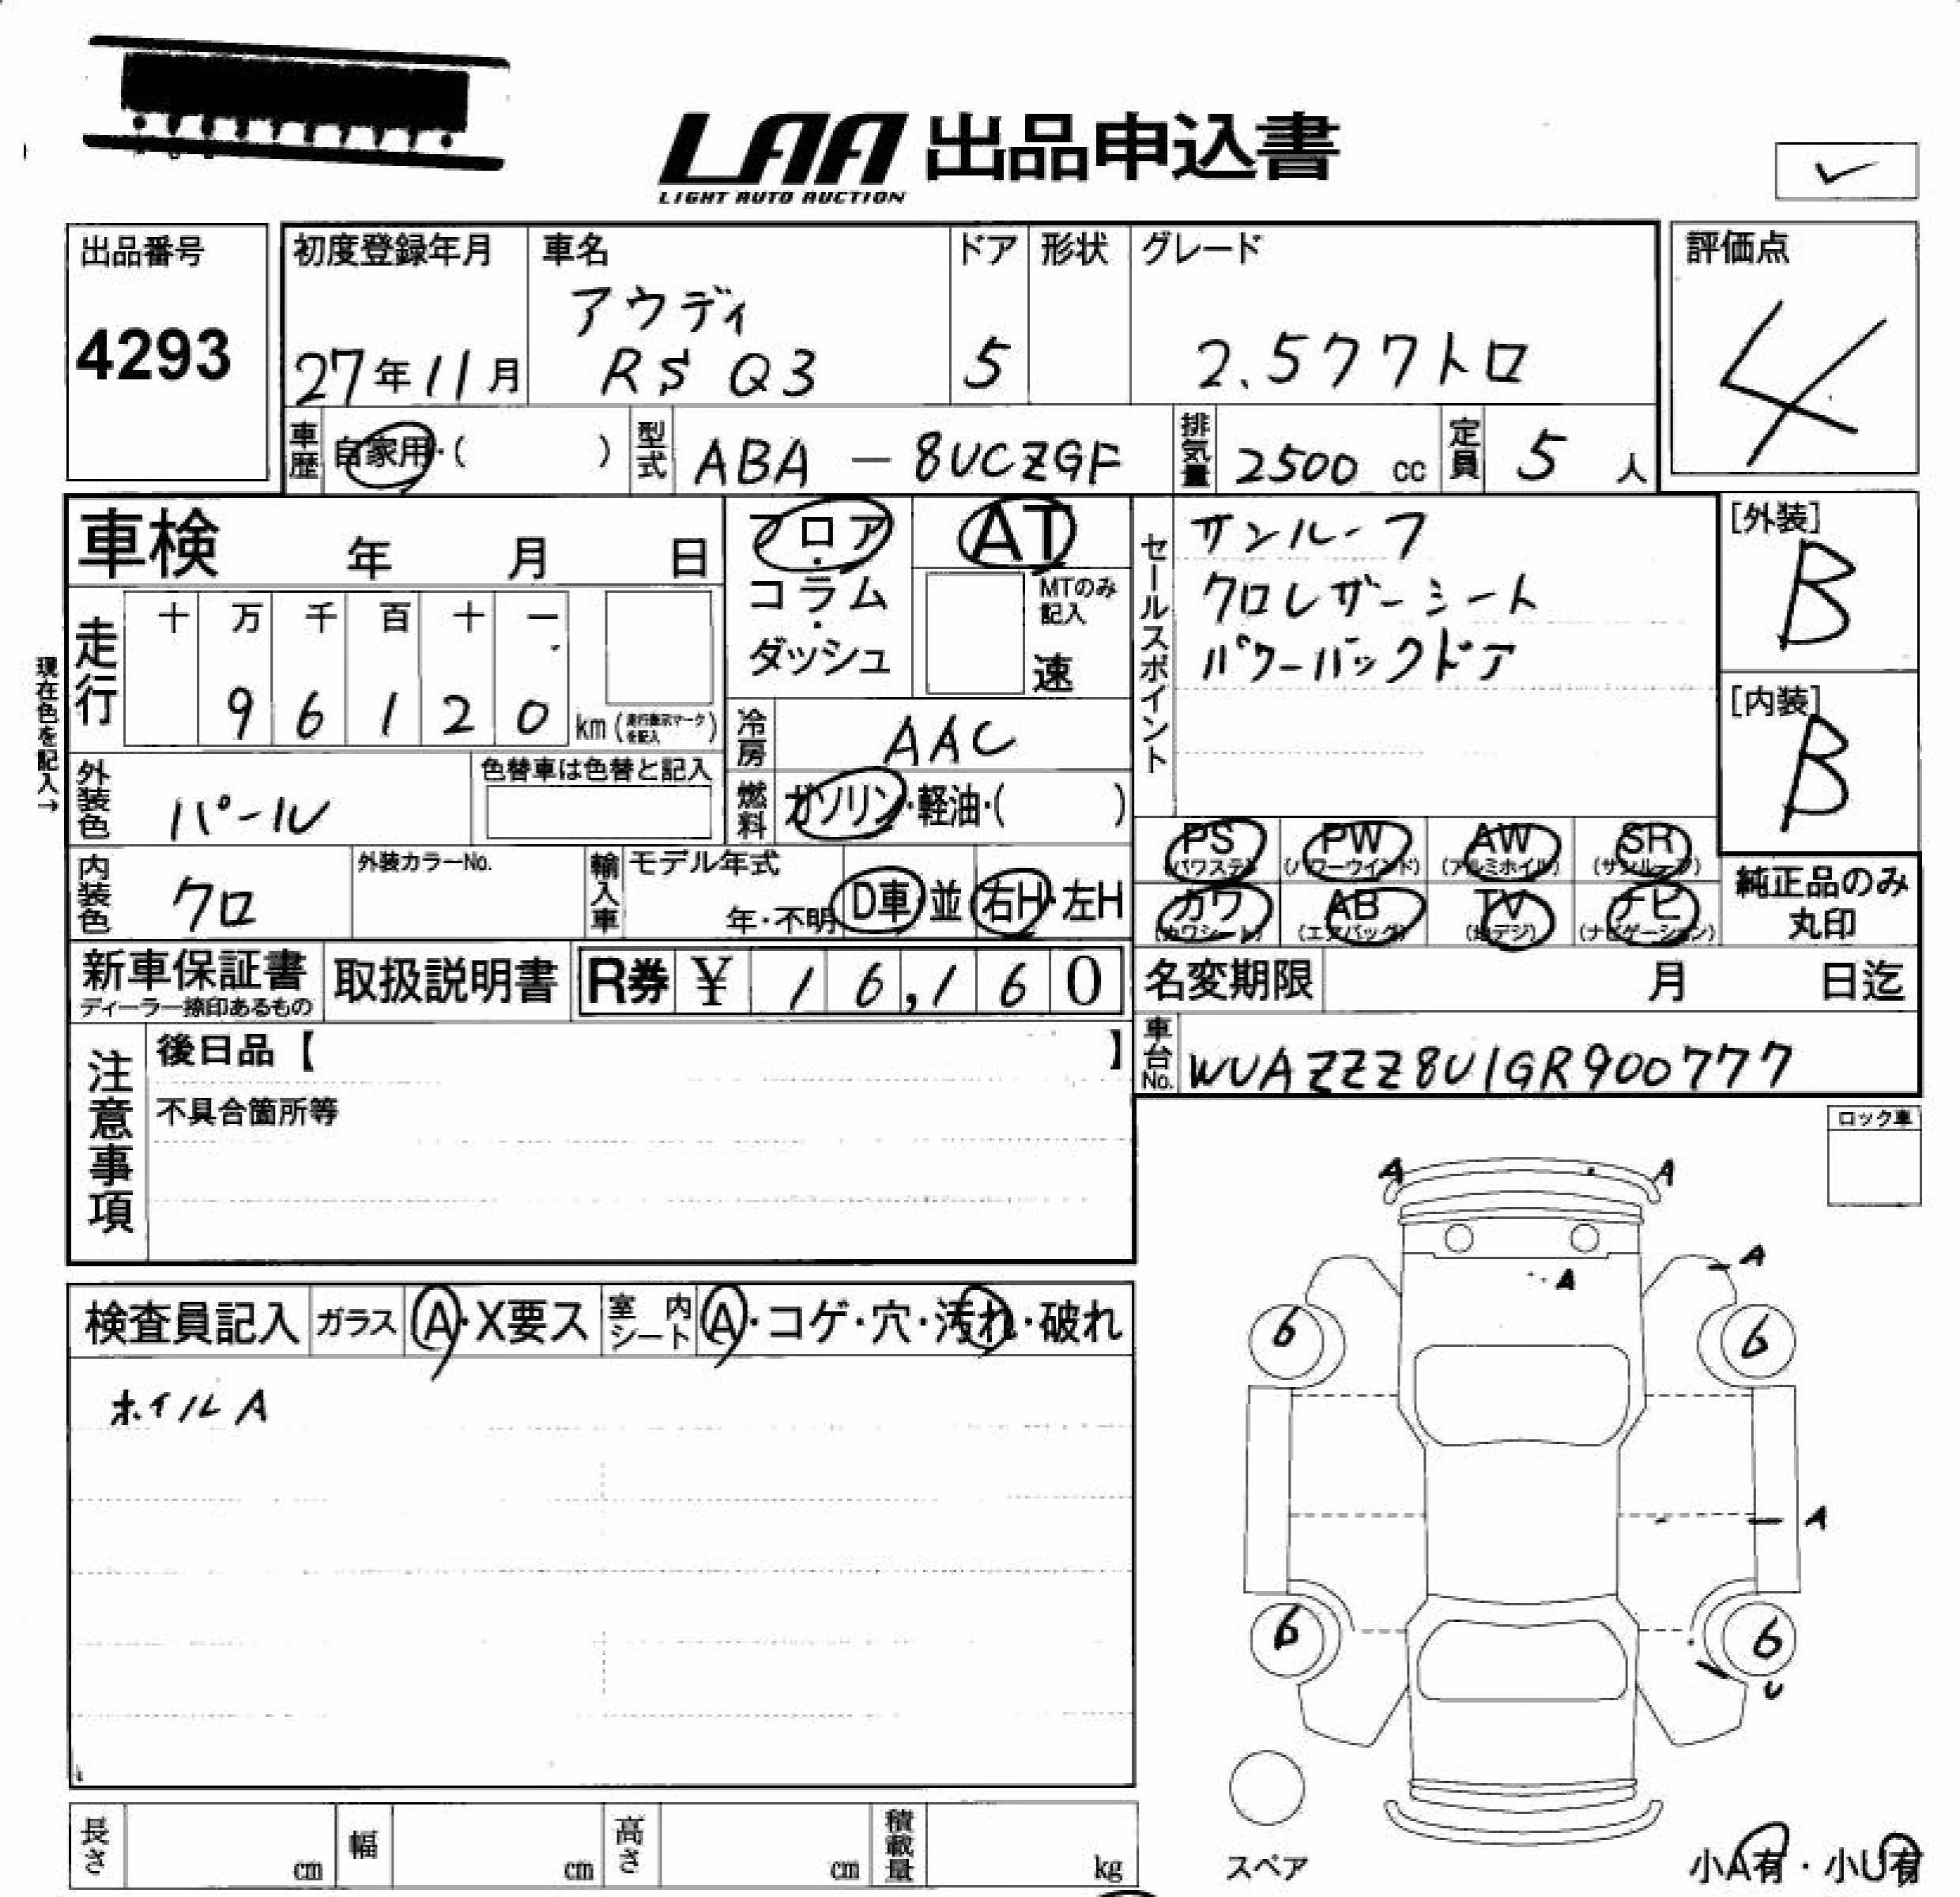 LAA 出品申込書
LIGHT AUTO AUCTION
出品番号
4293
初度登録年月
27年11月
車名
アウディ
RS Q3
ドア
5
形状
グレード
2.5クワトロ
評価点
4
車歴
自家用・( )
型式
ABA-8UCZGF
排気量
2500 cc
定員
5 人
車検 年 月 日
フロア・コラム・ダッシュ
AT
MTのみ記入
速
セールスポイント
サンルーフ
クロレザーシート
パワーバックドア
[外装]
B
[内装]
B
現在色を記入→
走行
十 万 千 百 十 一
9 6 1 2 0
km (走行表示マークを記入)
冷房
AAC
外装色
パール
色替車は色替と記入
燃料
ガソリン・軽油・( )
内装色
クロ
外装カラーNo.
輸入車
モデル年式
年・不明
D車・並
右H・左H
PS (パワステ)
PW (パワーウインド)
AW (アルミホイル)
SR (サンルーフ)
カワ (カワシート)
AB (エアバッグ)
TV (地デジ)
ナビ (ナビゲーション)
純正品のみ
丸印
新車保証書
ディーラー捺印あるもの
取扱説明書
R券 ¥ 16,160
名変期限 月 日迄
車台No.
WUAZZZ8U1GR900777
注意事項
後日品【 】
不具合箇所等
ロック車
検査員記入
ガラス
A・X要ス
室内シート
A・コゲ・穴・汚れ・破れ
ホイルA
A A
A
A
6 6
A
6 6
U
スペア
小A有・小U有
長さ cm
幅 cm
高さ cm
積載量 kg